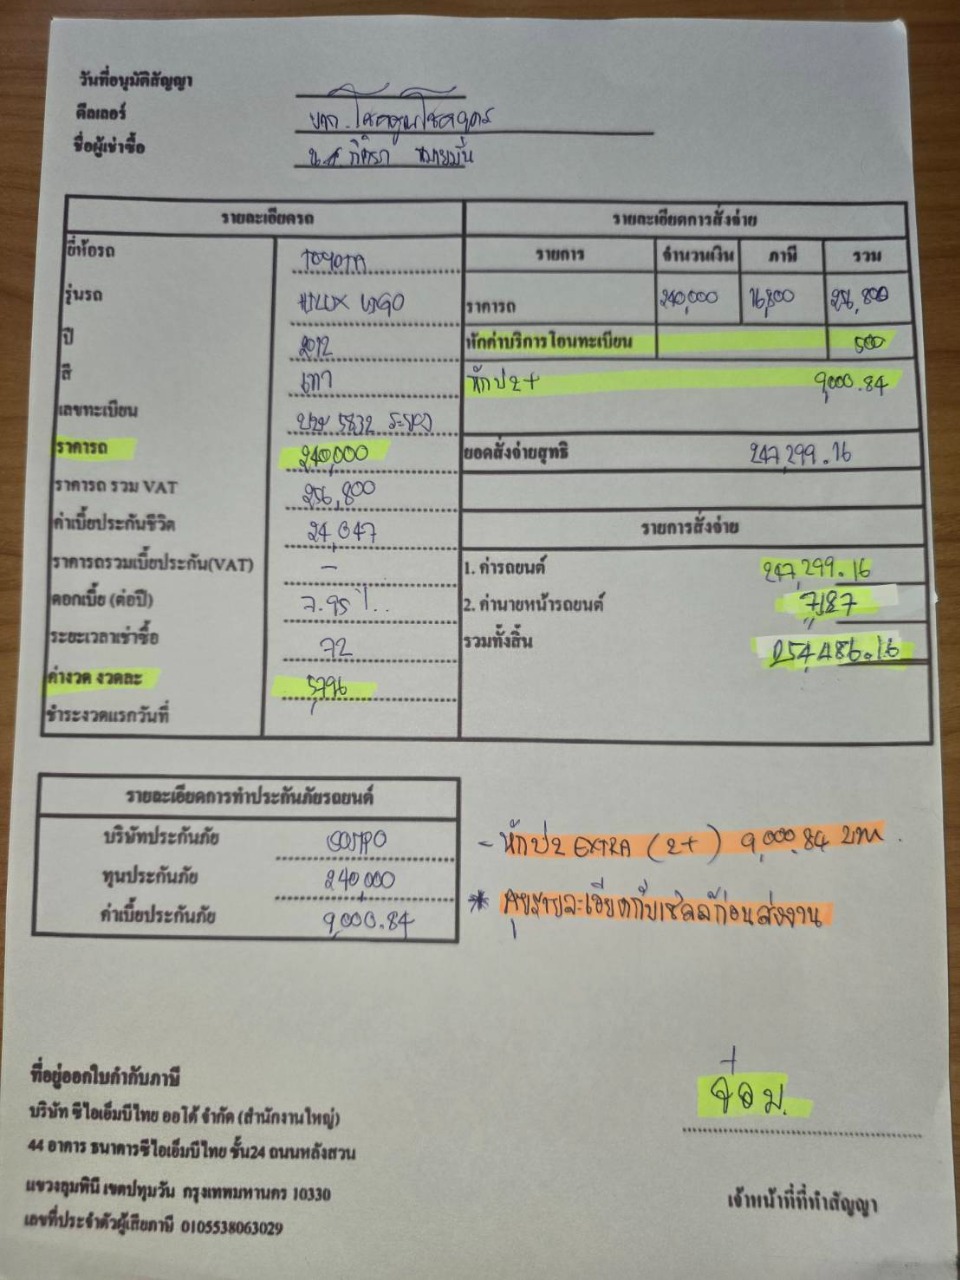 วันที่อนุมัติสัญญา
ดีลเลอร์ บจก. โชคคูณโชคถาวร
ชื่อผู้เช่าซื้อ น.ส
รายละเอียดรถ
ยี่ห้อรถ TOYOTA
รุ่นรถ HILUX VIGO
ปี 2012
สี เทา
เลขทะเบียน 5832 ระยอง
ราคารถ 240,000
ราคารถ รวม VAT 256,800
ค่าเบี้ยประกันชีวิต 24,047
ราคารถรวมเบี้ยประกัน(VAT) -
ดอกเบี้ย (ต่อปี) 7.95 %.
ระยะเวลาเช่าซื้อ 72
ค่างวด งวดละ 5,796
ชำระงวดแรกวันที่
รายละเอียดการสั่งจ่าย
รายการ จำนวนเงิน ภาษี รวม
ราคารถ 240,000 16,800 256,800
หักค่าบริการโอนทะเบียน 500
หัก ป2+ 9,000.84
ยอดสั่งจ่ายสุทธิ 247,299.16
รายการสั่งจ่าย
1. ค่ารถยนต์ 247,299.16
2. ค่านายหน้ารถยนต์ 7,187
รวมทั้งสิ้น 254,486.16
รายละเอียดการทำประกันภัยรถยนต์
บริษัทประกันภัย SOMPO
ทุนประกันภัย 240,000
ค่าเบี้ยประกันภัย 9,000.84
- หัก ป2 EXTRA (2+) 9,000.84 บาท.
* คุยรายละเอียดกับเซลล์ก่อนส่งงาน
ที่อยู่ออกใบกำกับภาษี
บริษัท ซีไอเอ็มบีไทย ออโต้ จำกัด (สำนักงานใหญ่)
44 อาคาร ธนาคารซีไอเอ็มบีไทย ชั้น24 ถนนหลังสวน
แขวงลุมพินี เขตปทุมวัน กรุงเทพมหานคร 10330
เลขที่ประจำตัวผู้เสียภาษี 0105538063029
จ๋อม.
เจ้าหน้าที่ที่ทำสัญญา